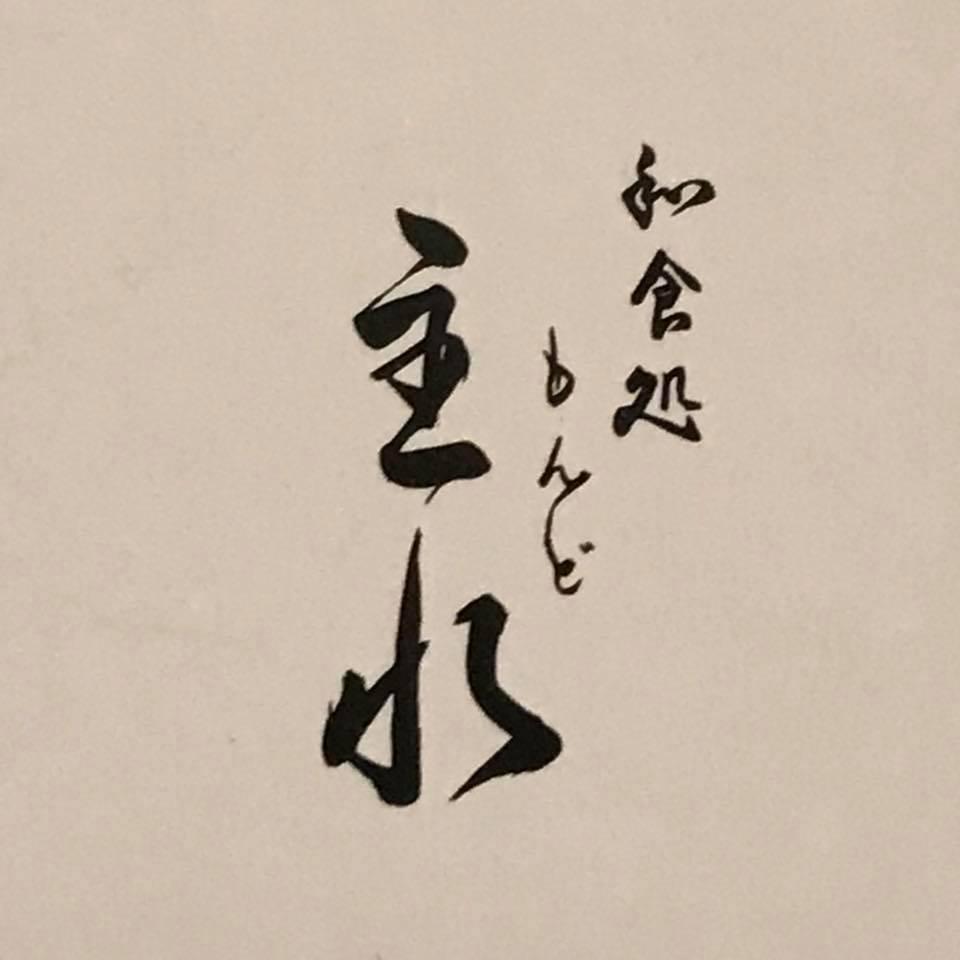 和食処
もんど
主水